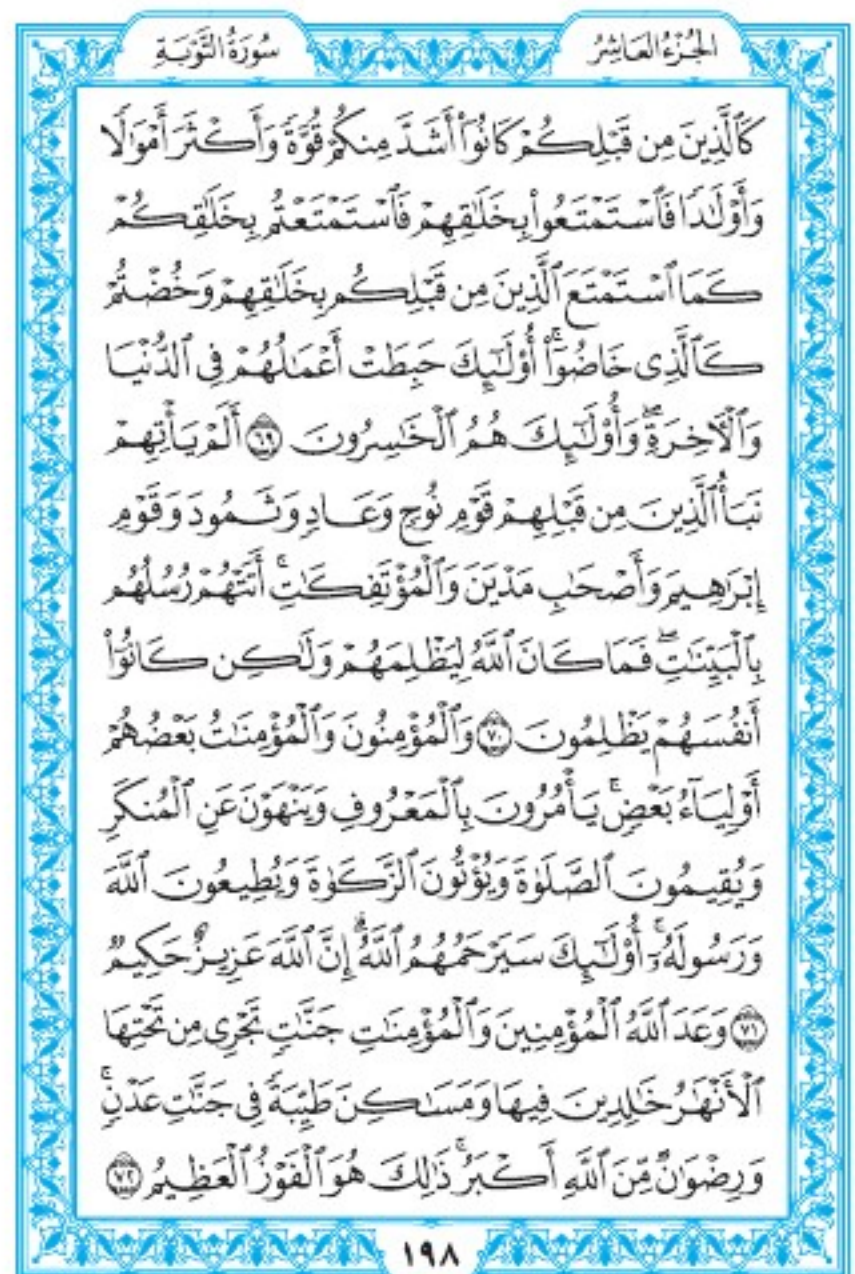 الجُزْءُ العَاشِرُ
سُورَةُ التَّوْبَةِ
كَٱلَّذِينَ مِن قَبْلِكُمْ كَانُوٓا۟ أَشَدَّ مِنكُمْ قُوَّةً وَأَكْثَرَ أَمْوَٰلًا
وَأَوْلَٰدًا فَٱسْتَمْتَعُوا۟ بِخَلَٰقِهِمْ فَٱسْتَمْتَعْتُم بِخَلَٰقِكُمْ
كَمَا ٱسْتَمْتَعَ ٱلَّذِينَ مِن قَبْلِكُم بِخَلَٰقِهِمْ وَخُضْتُمْ
كَٱلَّذِى خَاضُوٓا۟ۚ أُو۟لَٰٓئِكَ حَبِطَتْ أَعْمَٰلُهُمْ فِى ٱلدُّنْيَا
وَٱلْـَٔاخِرَةِۖ وَأُو۟لَٰٓئِكَ هُمُ ٱلْخَٰسِرُونَ ٦٩ أَلَمْ يَأْتِهِمْ
نَبَأُ ٱلَّذِينَ مِن قَبْلِهِمْ قَوْمِ نُوحٍ وَعَادٍ وَثَمُودَ وَقَوْمِ
إِبْرَٰهِيمَ وَأَصْحَٰبِ مَدْيَنَ وَٱلْمُؤْتَفِكَٰتِۚ أَتَتْهُمْ رُسُلُهُم
بِٱلْبَيِّنَٰتِۖ فَمَا كَانَ ٱللَّهُ لِيَظْلِمَهُمْ وَلَٰكِن كَانُوٓا۟
أَنفُسَهُمْ يَظْلِمُونَ ٧٠ وَٱلْمُؤْمِنُونَ وَٱلْمُؤْمِنَٰتُ بَعْضُهُمْ
أَوْلِيَآءُ بَعْضٍۚ يَأْمُرُونَ بِٱلْمَعْرُوفِ وَيَنْهَوْنَ عَنِ ٱلْمُنكَرِ
وَيُقِيمُونَ ٱلصَّلَوٰةَ وَيُؤْتُونَ ٱلزَّكَوٰةَ وَيُطِيعُونَ ٱللَّهَ
وَرَسُولَهُۥٓۚ أُو۟لَٰٓئِكَ سَيَرْحَمُهُمُ ٱللَّهُۗ إِنَّ ٱللَّهَ عَزِيزٌ حَكِيمٌ
٧١ وَعَدَ ٱللَّهُ ٱلْمُؤْمِنِينَ وَٱلْمُؤْمِنَٰتِ جَنَّٰتٍ تَجْرِى مِن تَحْتِهَا
ٱلْأَنْهَٰرُ خَٰلِدِينَ فِيهَا وَمَسَٰكِنَ طَيِّبَةً فِى جَنَّٰتِ عَدْنٍۚ
وَرِضْوَٰنٌ مِّنَ ٱللَّهِ أَكْبَرُۚ ذَٰلِكَ هُوَ ٱلْفَوْزُ ٱلْعَظِيمُ ٧٢
١٩٨